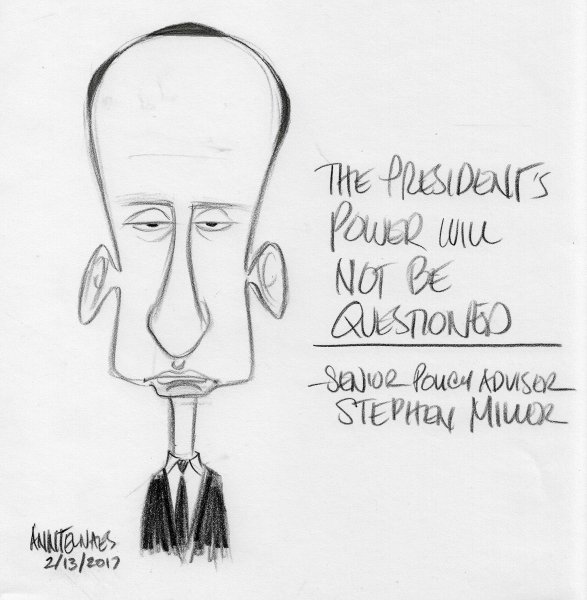 THE PRESIDENT'S
POWER WILL
NOT BE
QUESTIONED
-SENIOR POLICY ADVISER
STEPHEN MILLER
ANN TELNAES
2/13/2017